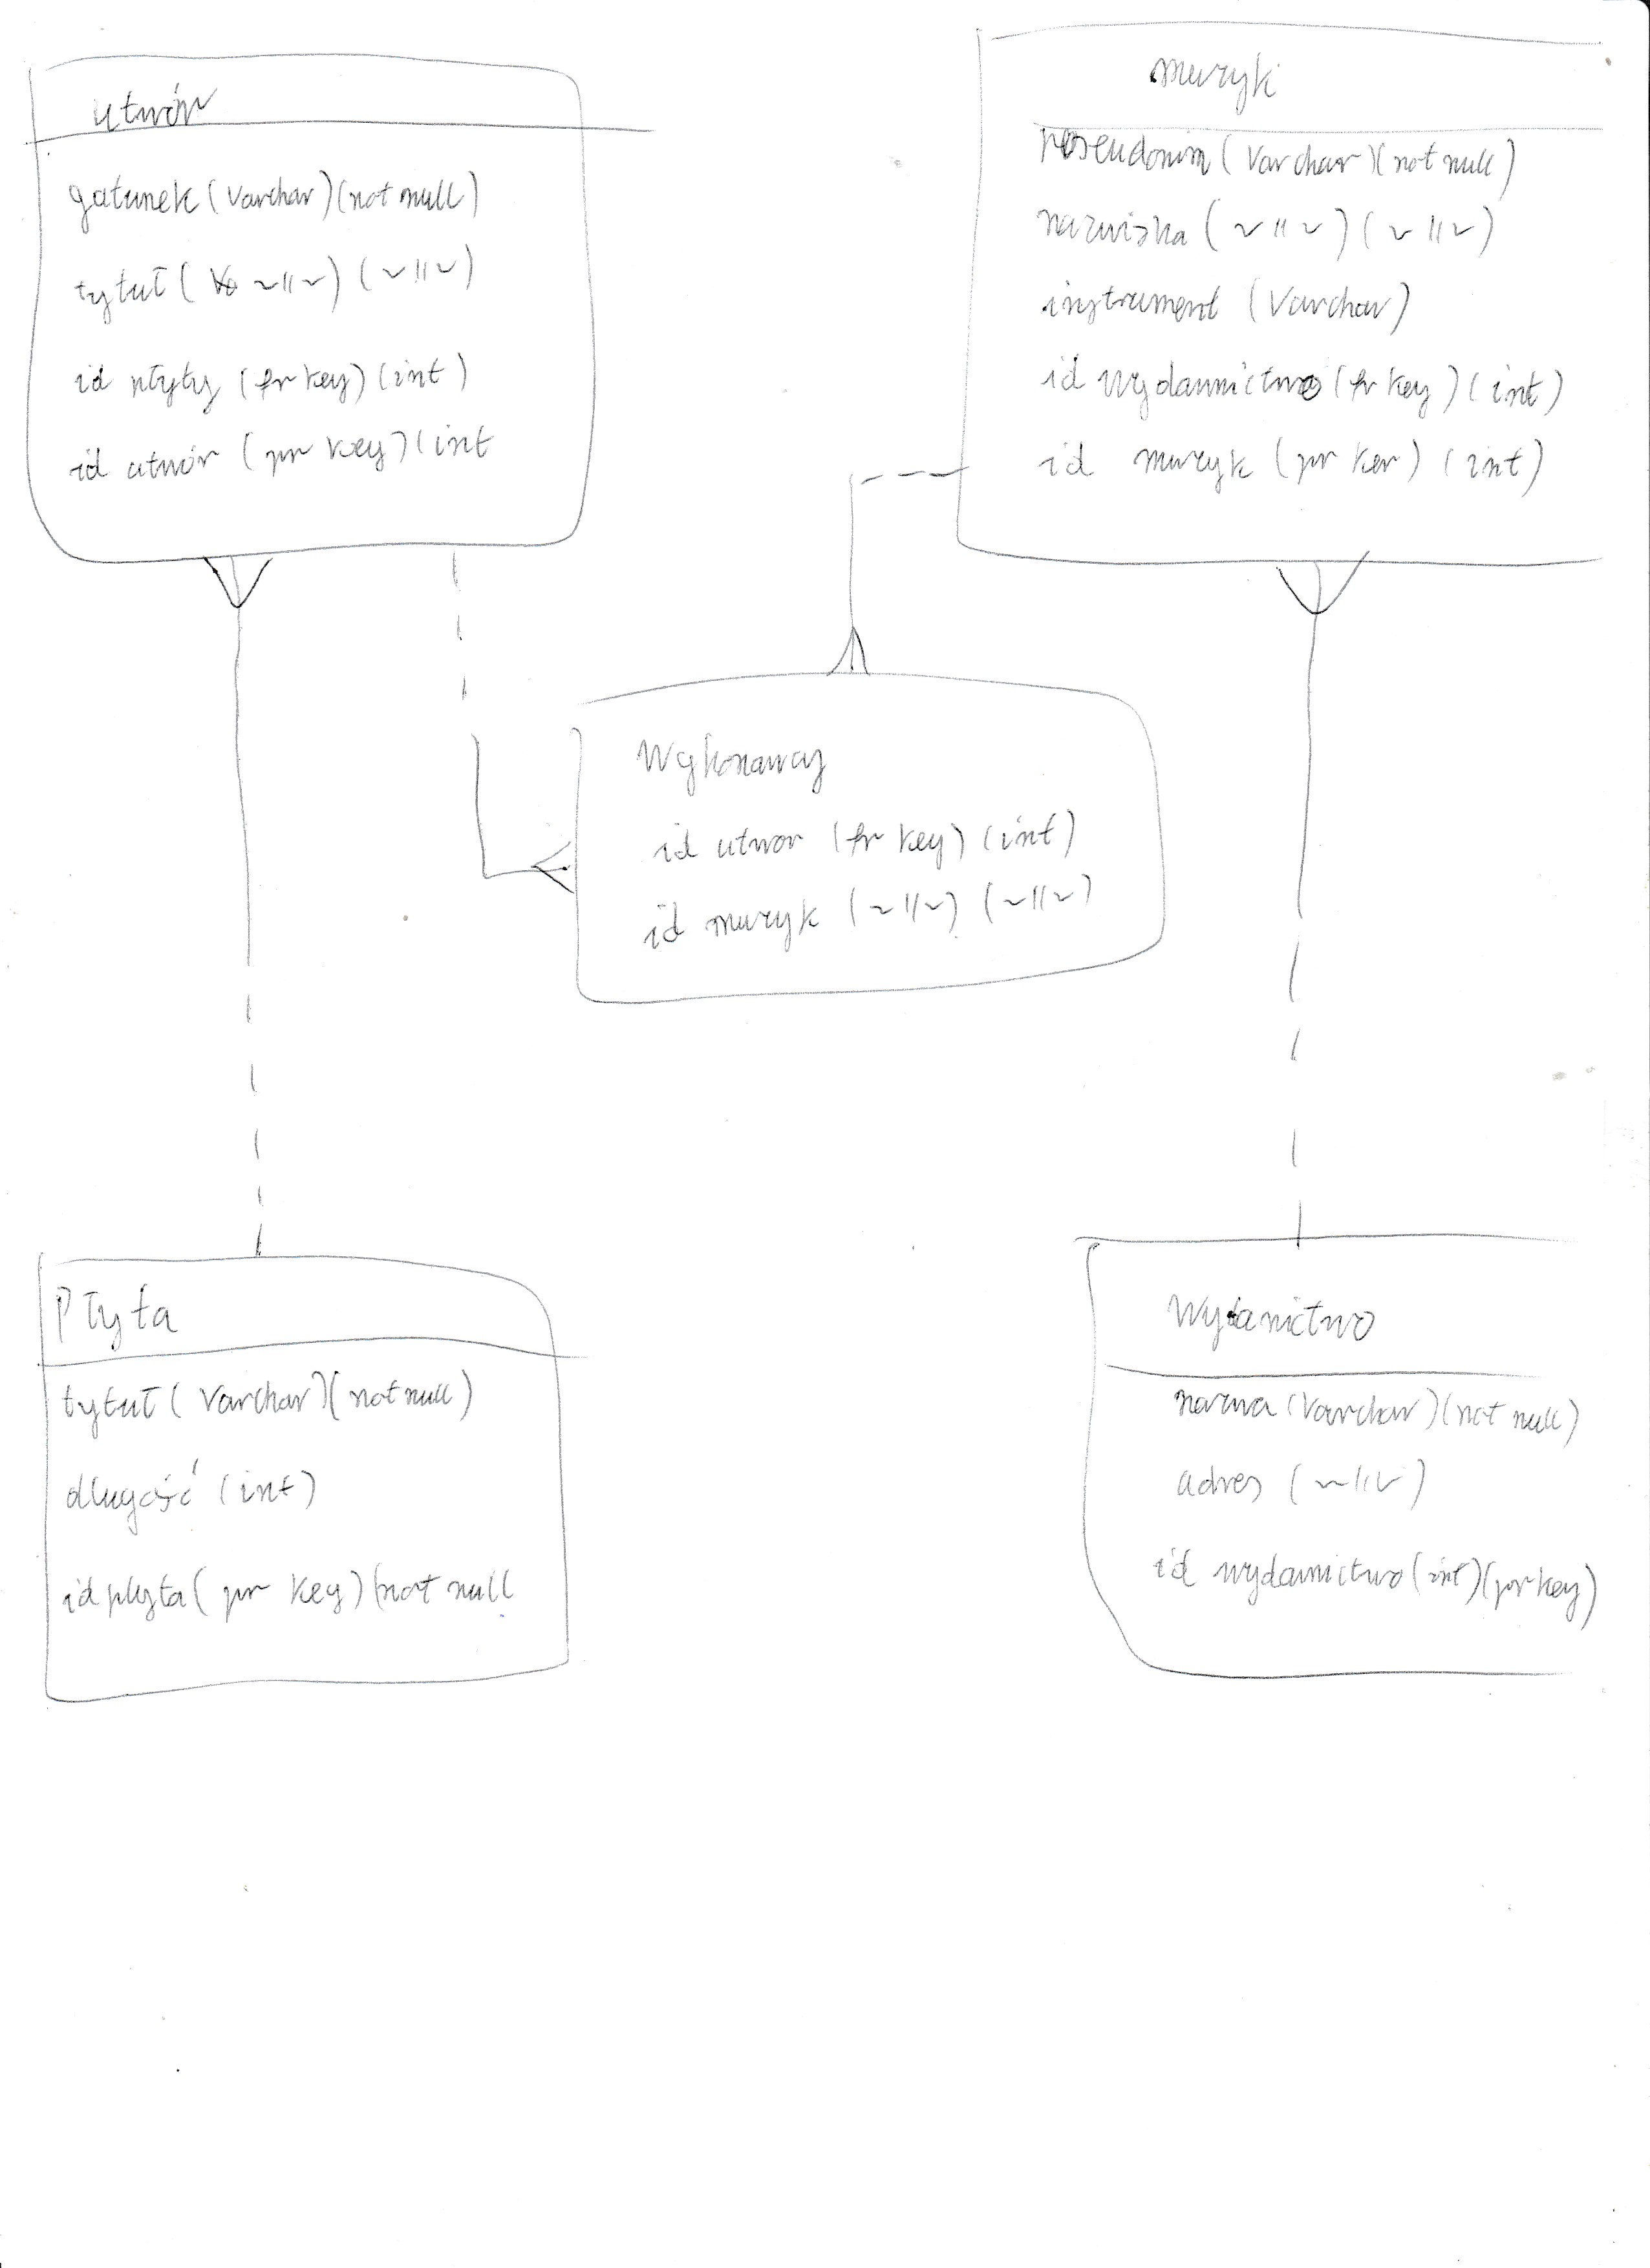 utwór
gatunek (Varchar)(not null)
tytuł ( ~ll~) (~ll~)
id płyty (fr key) (int)
id utwór (pr key) (int
muzyk
pseudonim (Varchar)(not null)
nazwiska (~ll~) (~ll~)
instrument (Varchar)
id wydawnictwo (fr key) (int)
id muzyk (pr key) (int)
Wykonawcy
id utwor (fr key) (int)
id muzyk (~ll~) (~ll~)
Płyta
tytuł (Varchar)(not null)
długość (int)
id płyta (pr key) (not null
Wydanictwo
nazwa (Varchar)(not null)
adres (~ll~)
id wydawnictwo (int)(pr key)